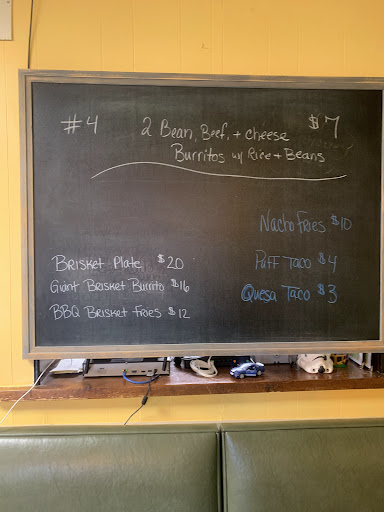 #4 2 Bean, Beef, + cheese $7
Burritos w/ Rice + Beans
Nacho Fries $10
Brisket Plate $20
Puff Taco $4
Giant Brisket Burrito $16
Quesa Taco $3
BBQ Brisket Fries $12